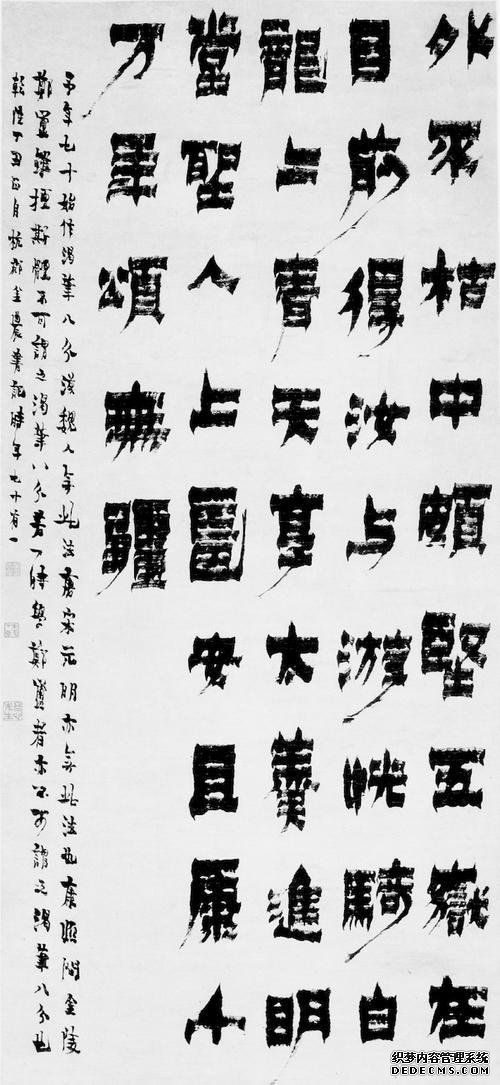 外不枯中頗堅五嶽在
目前得汝与游恍騎白
龍上書天享太羹進明
堂聖人上啚安且康千
万年頌無疆
予年七十始作渴筆八分漢魏人無此法唐宋元明亦無此法也康熙間金陵
鄭簠雖擅斯體不可謂之渴筆八分若一時學鄭簠者亦不可謂之渴筆八分也
乾隆丁丑正月杭郡金農書記時年七十有一
织梦内容管理系统
DEDECMS.COM